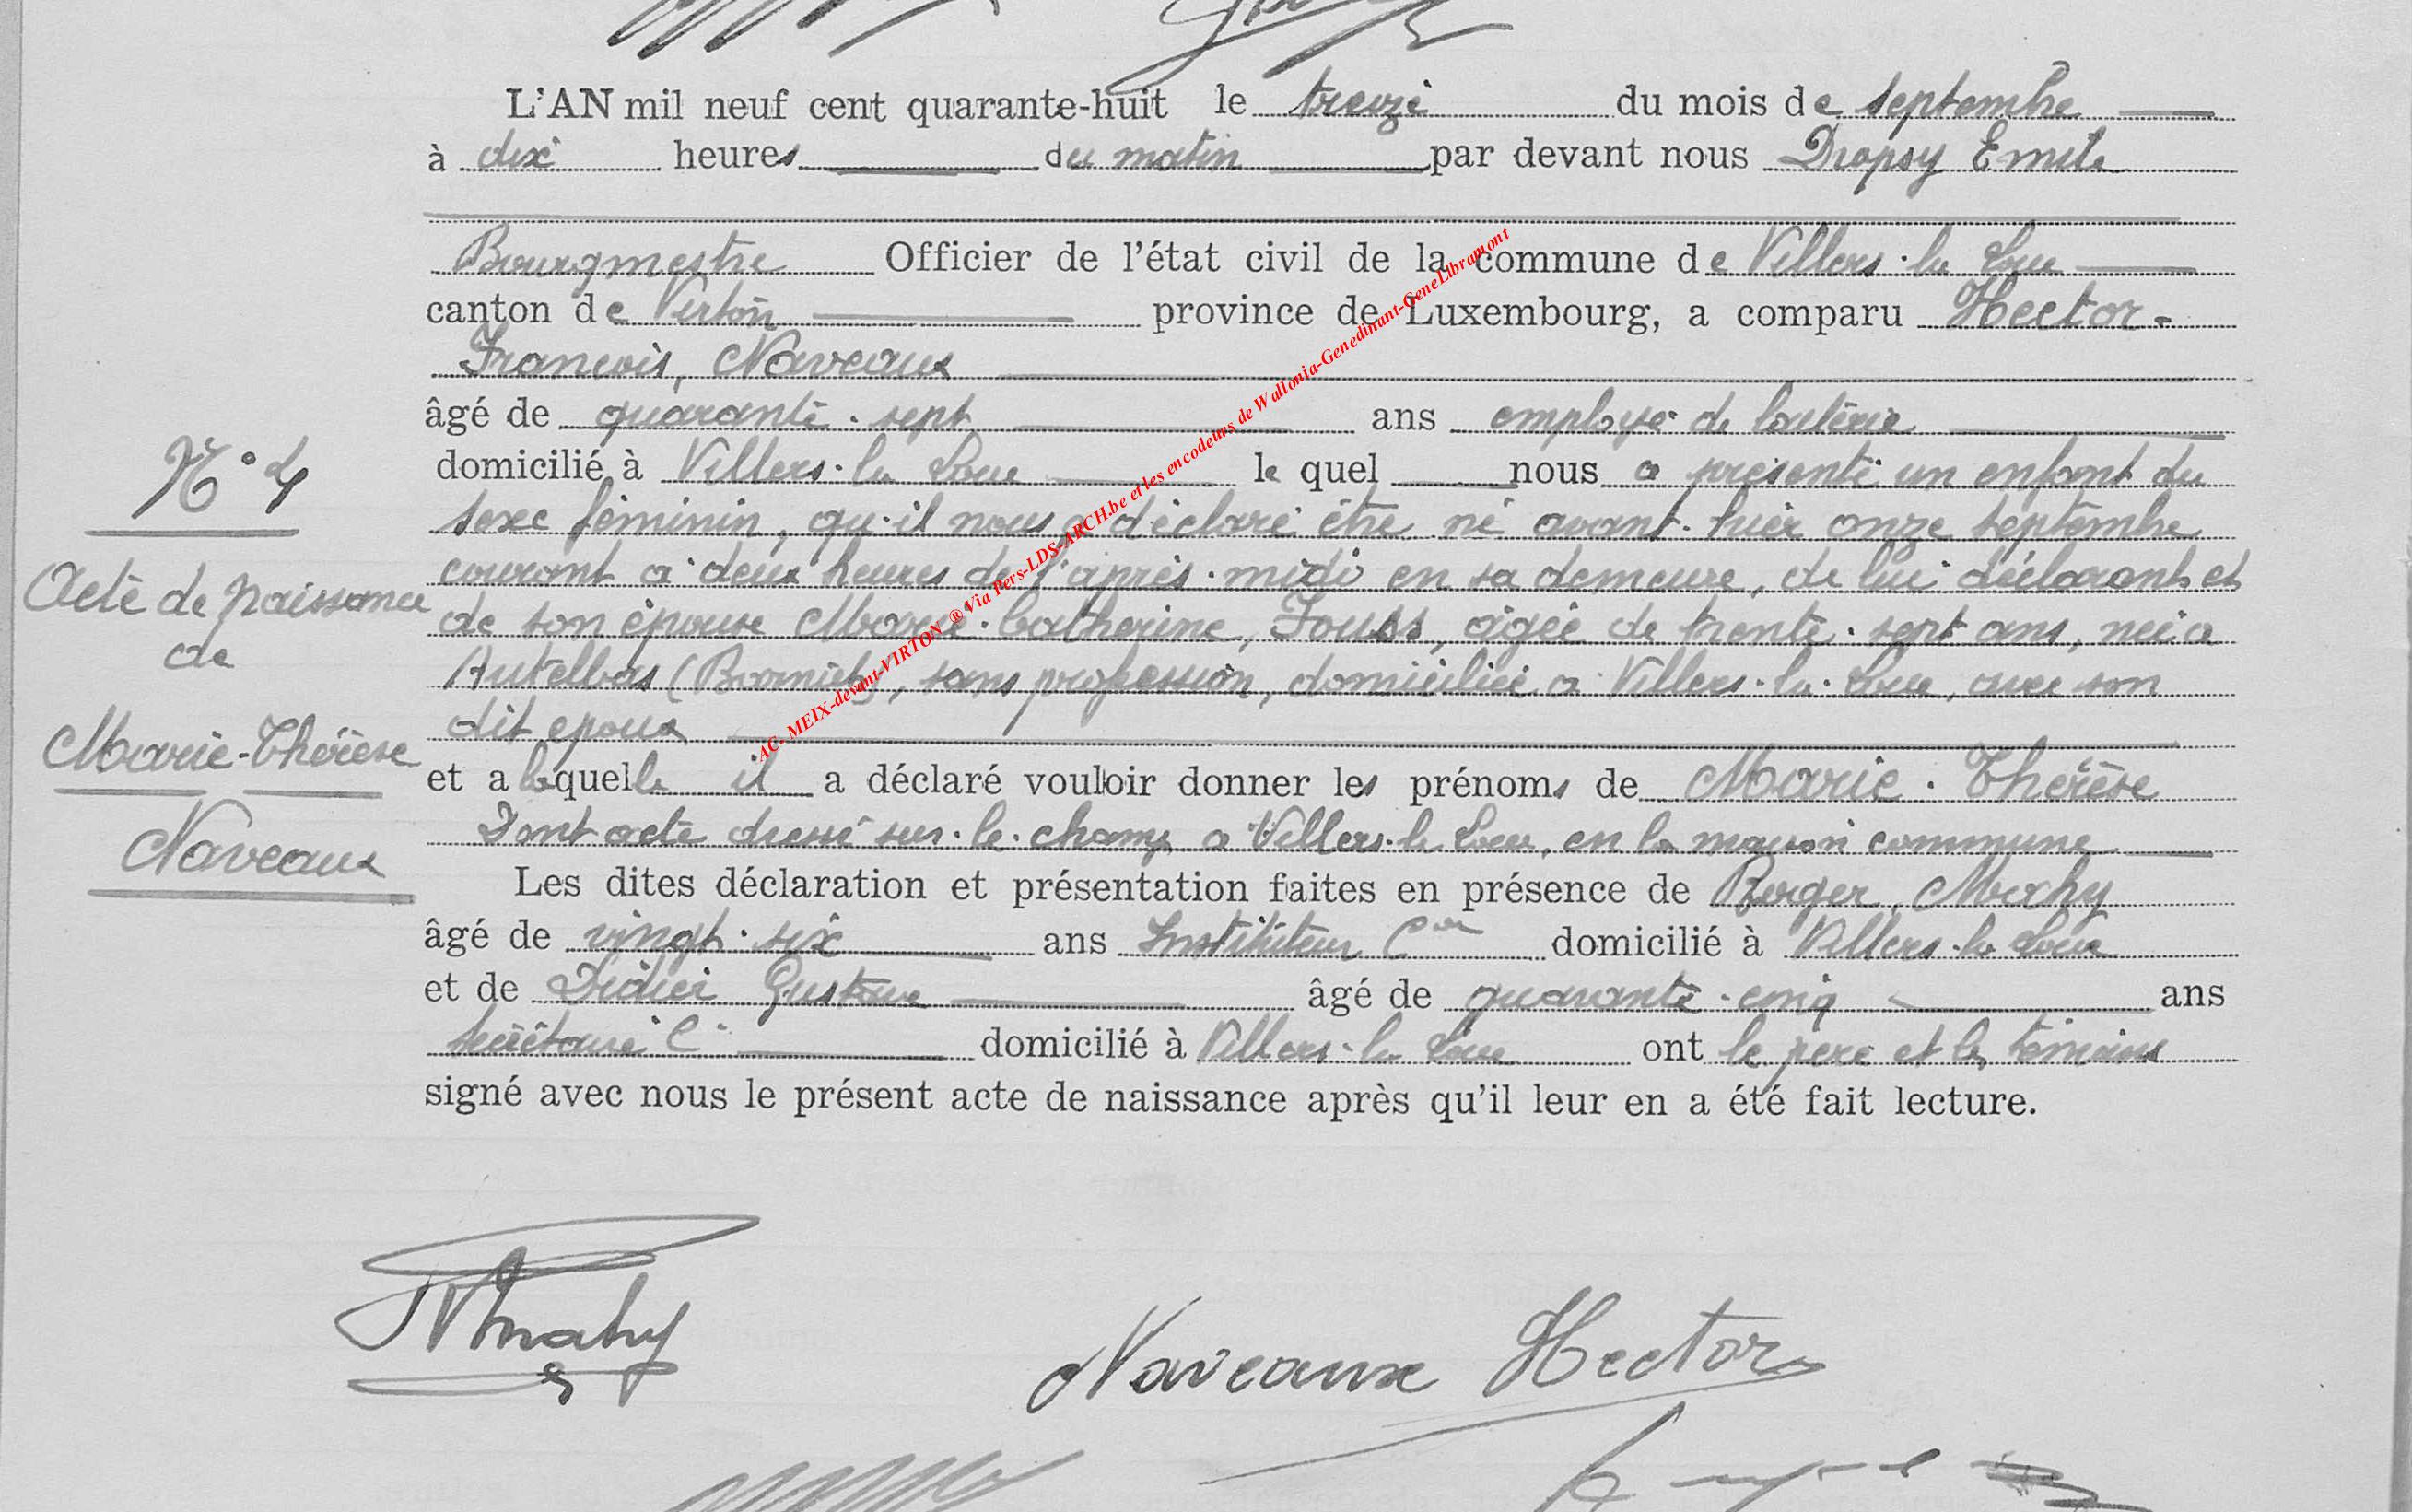 L'AN mil neuf cent quarante-huit le treize du mois de septembre
à dix heures du matin par devant nous Dropsy Emile
Bourgmestre Officier de l'état civil de la commune de Villers-la Loue
canton de Virton province de Luxembourg, a comparu Hector-
François, Naveaux
âgé de quarante-sept ans employé de
domicilié à Villers-la Loue le quel nous a présenté un enfant du
N° 4
sexe féminin, qu'il nous a déclaré être né avant-hier onze septembre
courant à deux heures de l'après-midi en sa demeure, de lui déclarant et
Acte de naissance
de son épouse Marie-Catherine, âgée de trente-sept ans, née à
de
Autelbas (Barnich), sans profession, domiciliée à Villers-la-Loue, avec son
dit époux
Marie-Thérèse
et a laquelle il a déclaré vouloir donner les prénoms de Marie-Thérèse
Dont acte dressé sur-le-champ à Villers-la Loue, en la maison commune
Naveaux
Les dites déclaration et présentation faites en présence de Roger, Mahy
âgé de vingt-six ans Instituteur domicilié à Villers-la Loue
et de Didier Gustave âgé de quarante-cinq ans
Secrétaire C domicilié à Villers-la Loue ont le père et les témoins
signé avec nous le présent acte de naissance après qu'il leur en a été fait lecture.
Mahy
Naveaux Hector
AC- MEIX-devant-VIRTON ® Via Pers-LDS-ARCH.be et les encodeurs de Wallonia-Genedinant-GeneLibramont